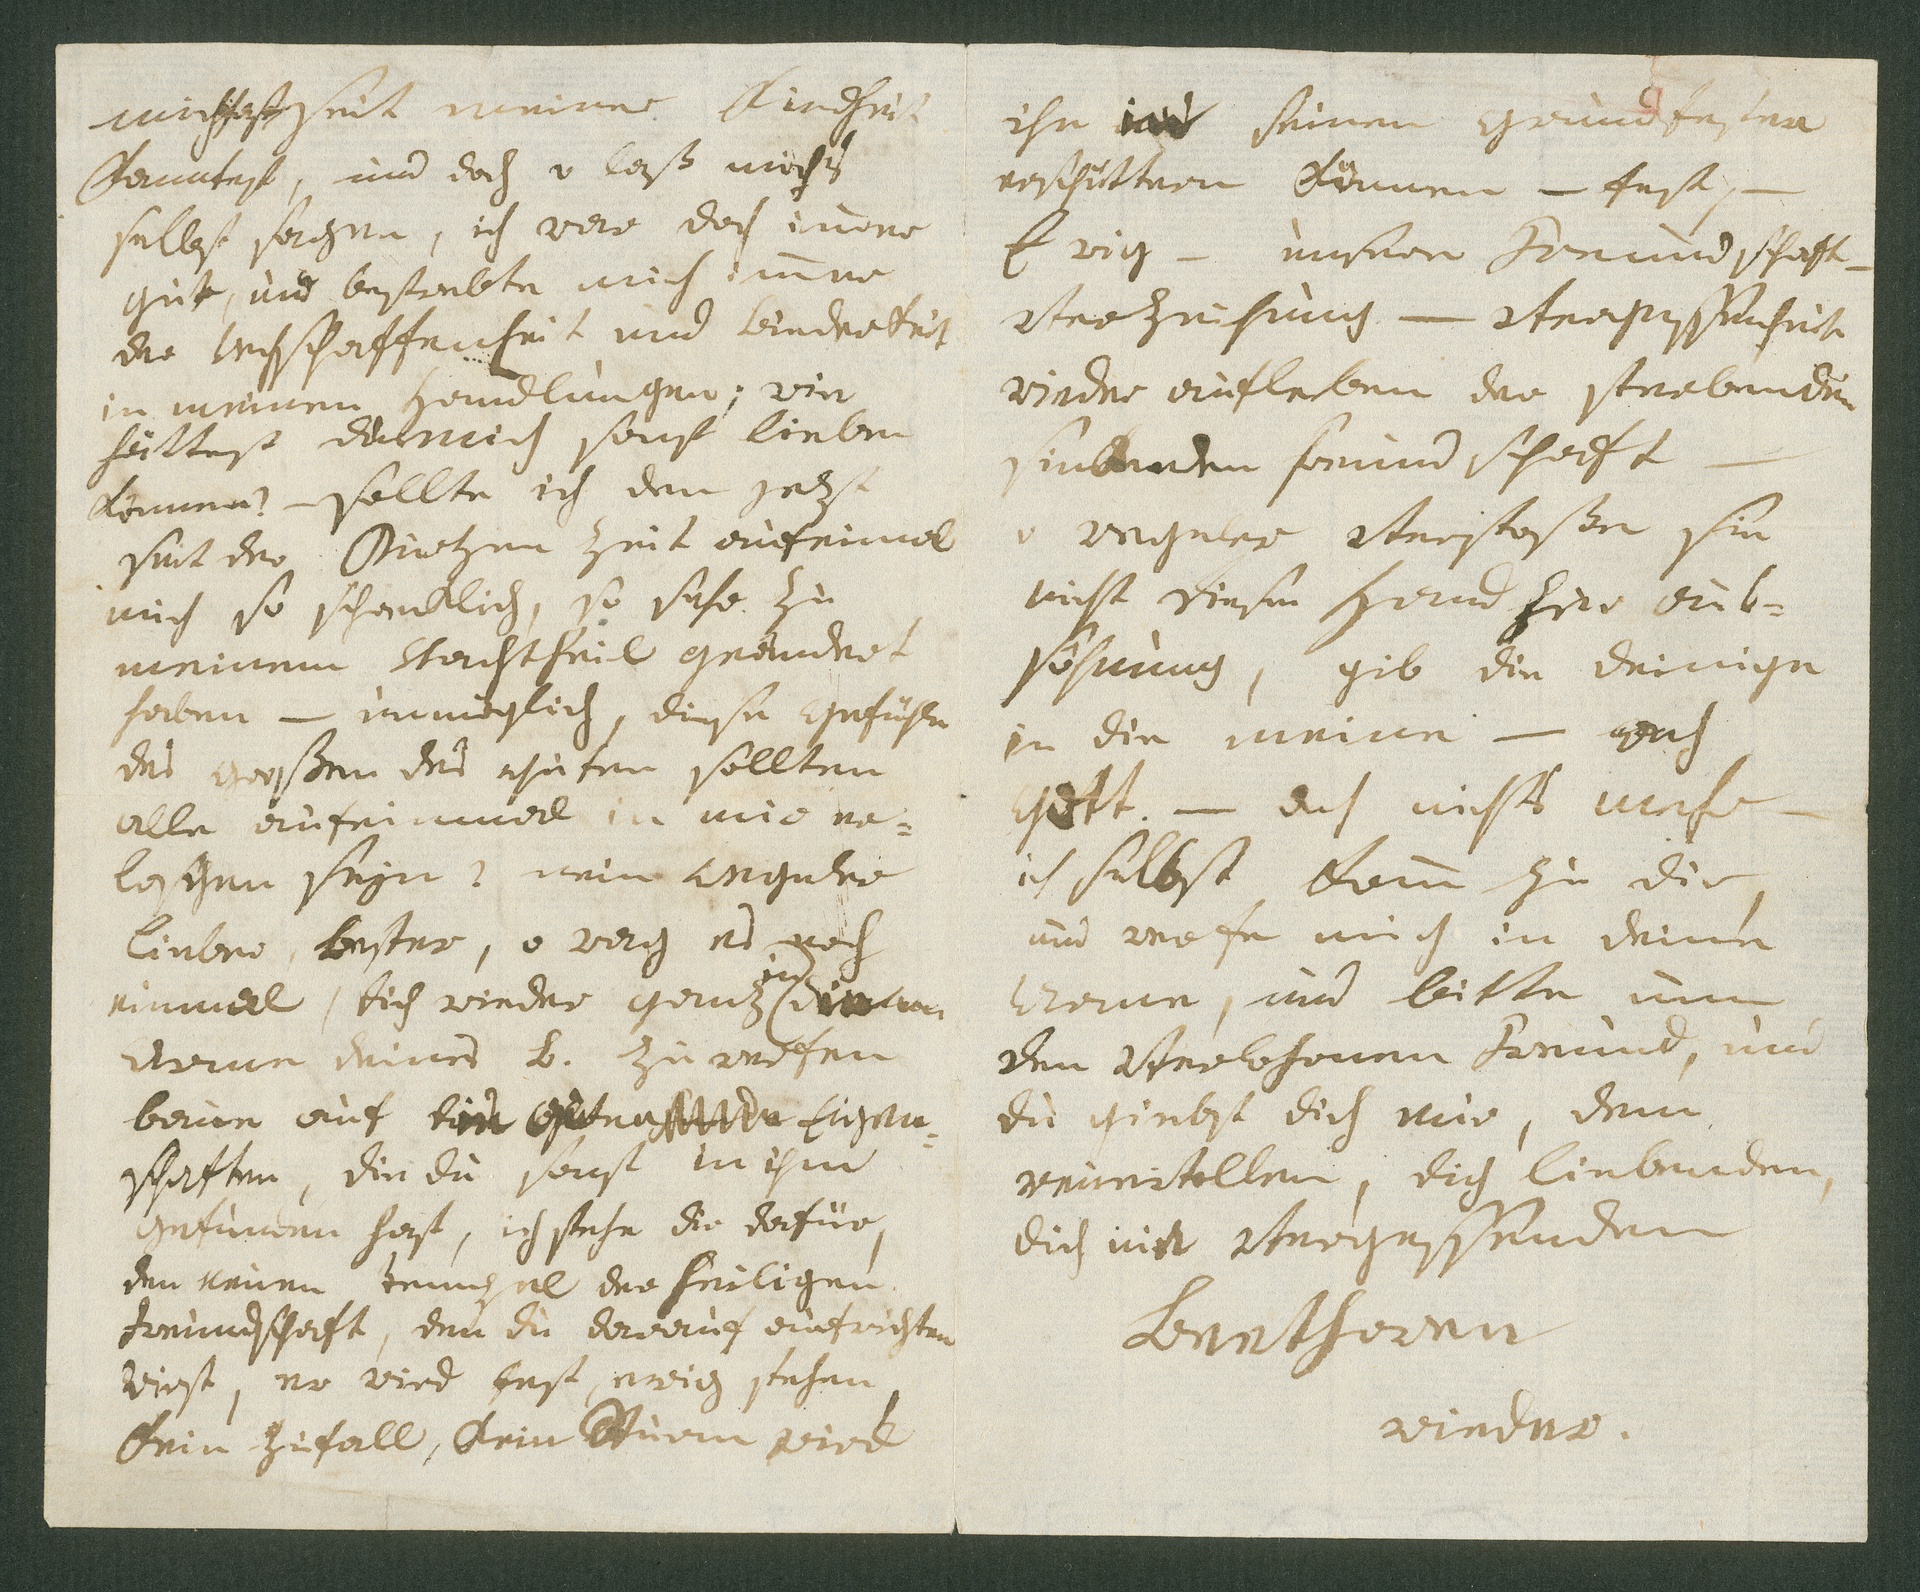 mich fast seit meiner Kindheit
kanntest, und doch o laß mich's
selbst sagen, ich war doch immer
gut, und bestrebte mich immer
der Rechschaffenheit und Biederkeit
in meinen Handlungen; wie
hättest du mich sonst lieben
können? – sollte ich den jetzt
seit der Kurtzen Zeit aufeinmal
mich so schrecklich, so sehr zu
meinem Nachtheil geändert
haben – unmöglich, diese Gefühle
des großen des guten sollten
alle aufeinmal in mir er=
loschen seyn? nein Wegeler
lieber, bester, o wag es noch
einmal, dich wieder ganz in die
Arme deines B. zu werfen
baue auf die guten Eigen=
schaften, die du sonst in ihm
gefunden hast, ich stehe dir dafür,
den neuen tempel der heiligen
Freundschaft, den du darauf aufrichten
wirst, er wird fest, ewig stehen,
kein Zufall, kein Sturm wird
ihn in seinen Grundfesten
erschüttern können – fest, –
Ewig – unsere Freundschaft –
Verzeihung – Vergessenheit
wieder aufleben der sterbenden
sinkenden freundschaft –
o Wegeler Verstoßen sie
nicht diese Hand zur auß=
söhnung, gib die deinige
in die meine – ach
Gott. – doch nichts mehr –
ich selbst komm zu dir,
und werfe mich in deine
Arme, und bitte um
den Verlohrnen Freund, und
du giebst dich mir, dem
reuevollen, dich liebenden,
dich nie Vergessenden
Beethoven
wieder.